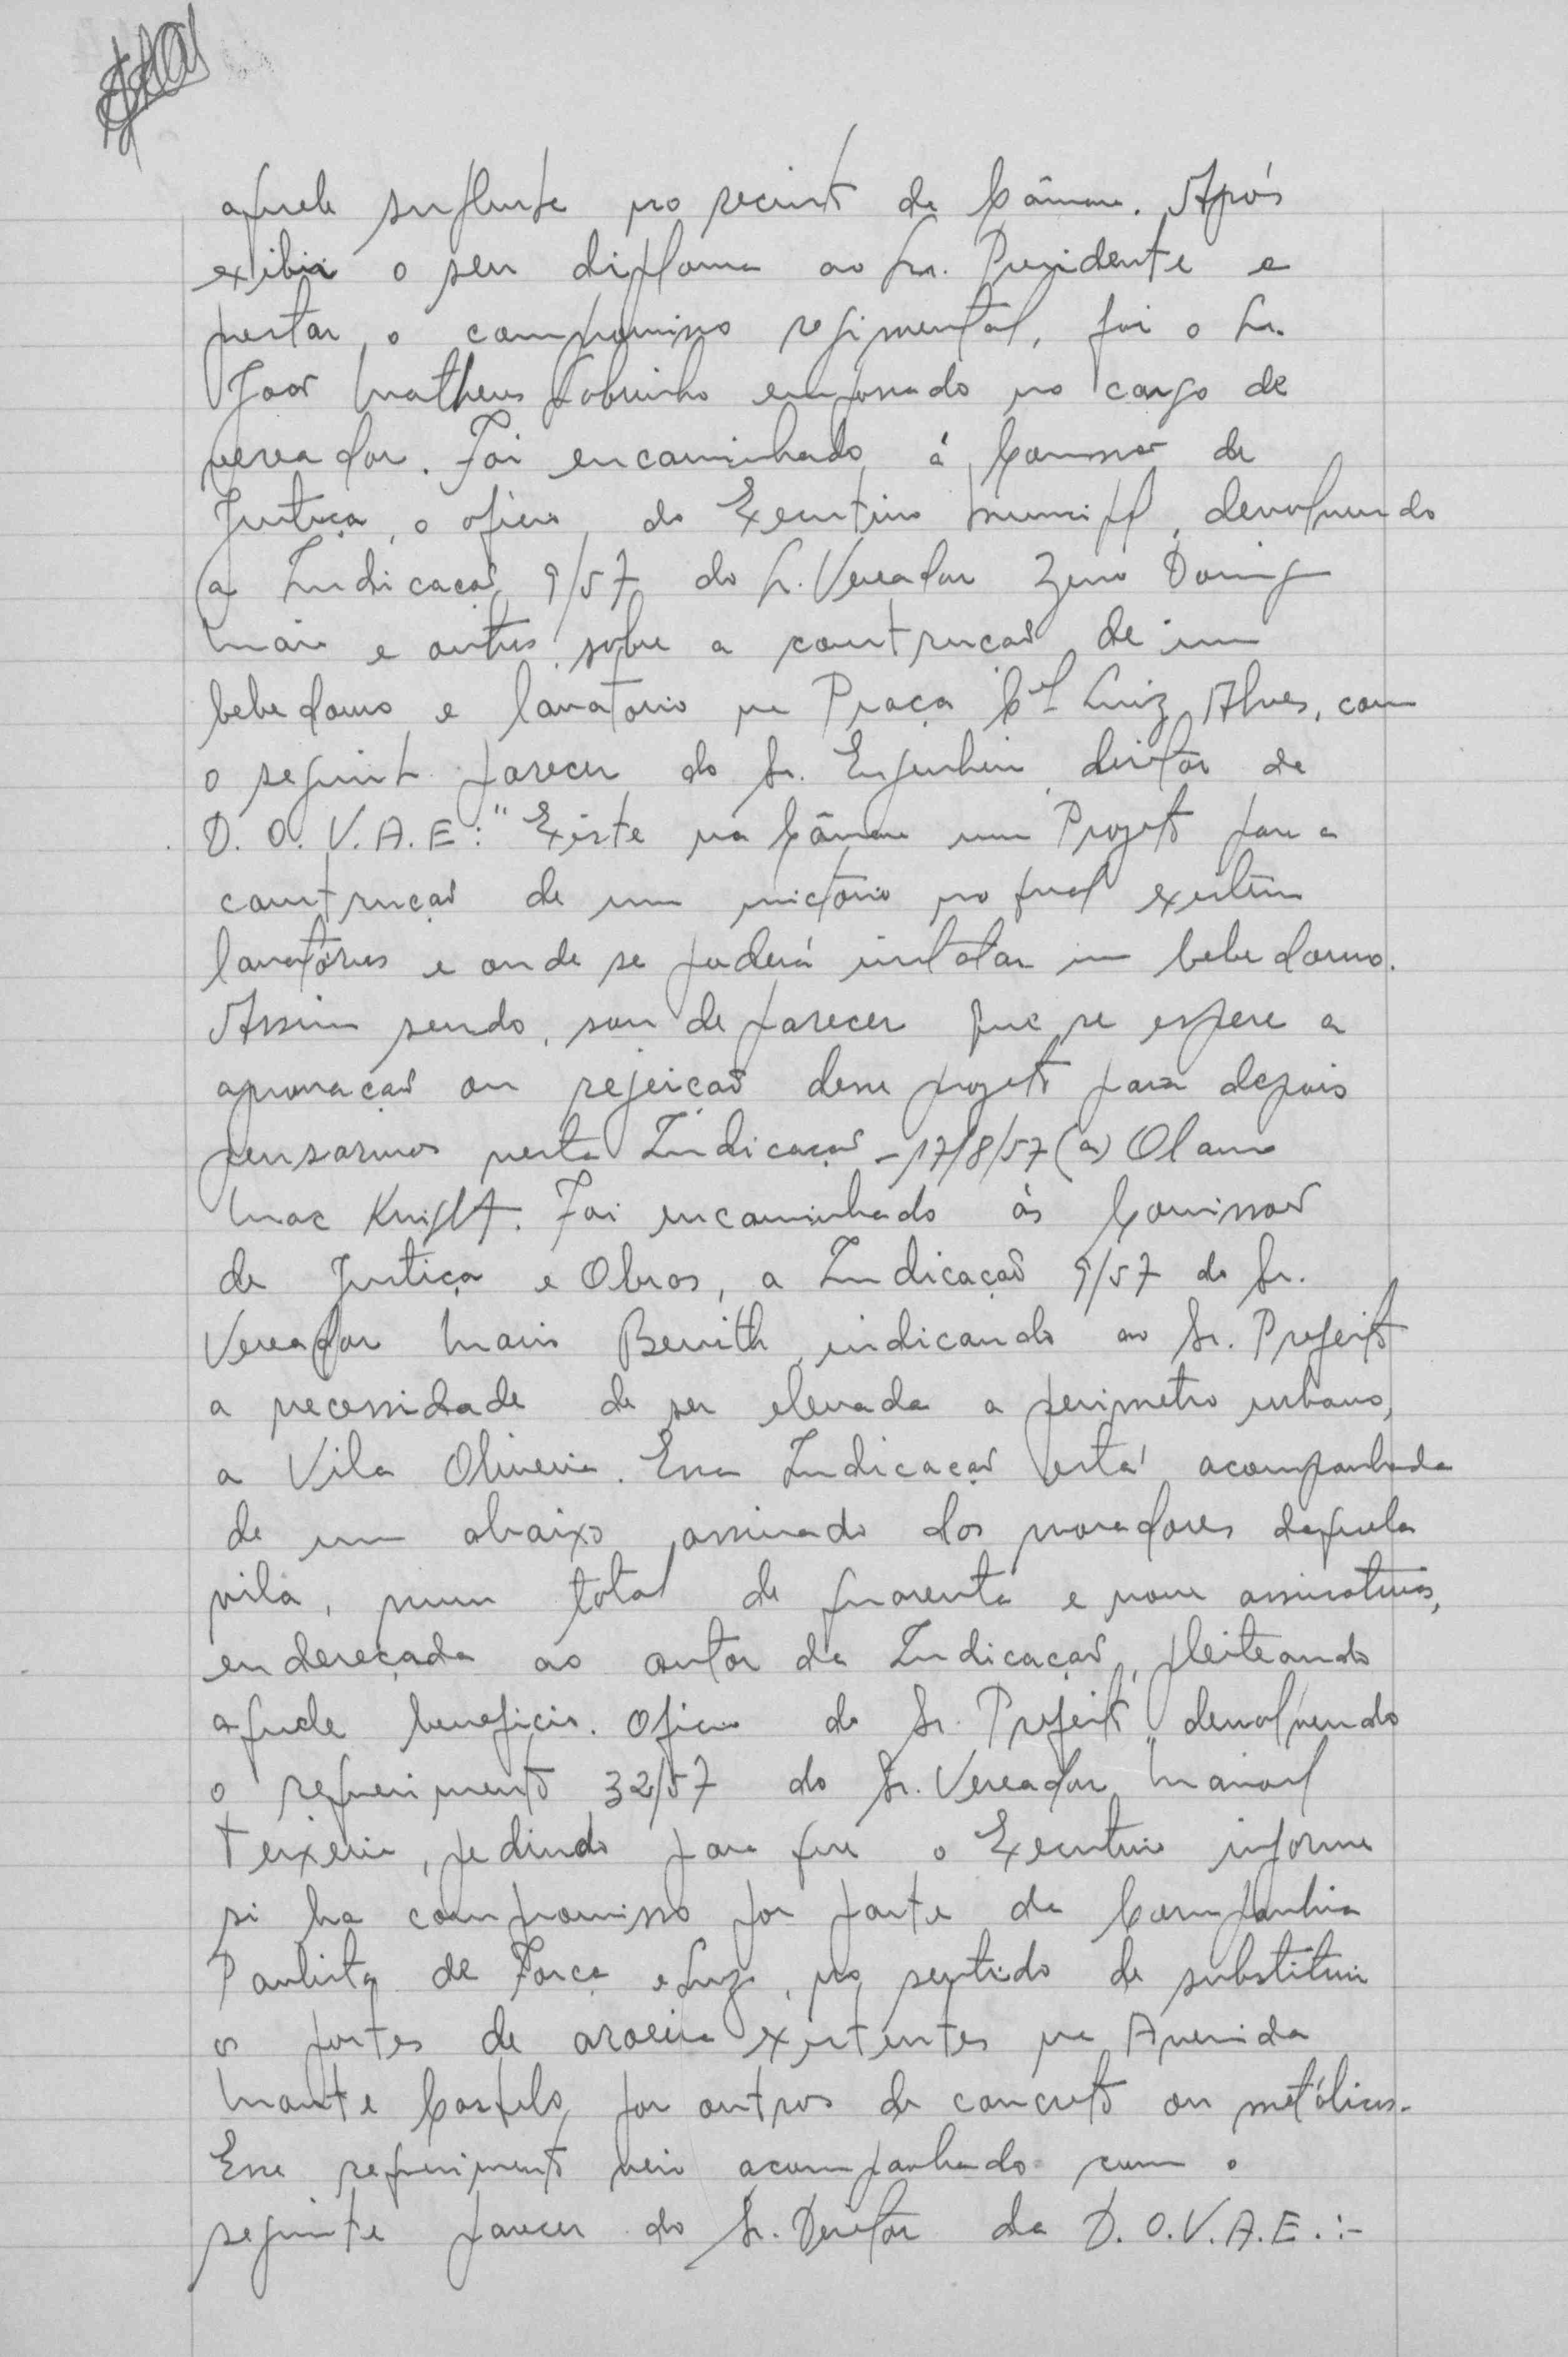 aquele suplente no recinto da Câmara. Após
exibir o seu diploma ao Sr. Presidente e
prestar o compromisso regimental, foi o Sr.
João Matheus Sobrinho empossado no cargo de
vereador. Foi encaminhado á Comissão de
Justiça, o oficio, do Executivo Municipal, devolvendo
a Indicação 9/57 do Sr. Vereador Zeno Domingos
Maia e outros sobre a construção de um
bebedouro e lavatorio na Praça Cel Luiz Alves, com
o seguinte parecer do Sr. Engenheiro diretor da
D. O. V. A. E: "Existe na Câmara um Projeto para a
construção de um mictório no qual existem
lavatórios e onde se poderá instalar um bebedouro.
Assim sendo, sou de parecer que se espere a
aprovação ou rejeição desse projeto para depois
pensarmos nesta Indicação - 17/8/57 (a) Olavo
Mac Knight. Foi encaminhado às Comissão
de Justiça e Obras, a Indicação 9/57 do Sr.
Vereador Mario Benith, indicando ao Sr. Prefeito
a necessidade de ser elevada a perimetro urbano,
a Vila Oliveira. Essa Indicação está acompanhada
de um abaixo assinado dos moradores daquela
vila, num total de quarenta e nove assinaturas,
endereçada ao autor da Indicação, pleiteando
aquele beneficio. Oficio do Sr. Prefeito, devolvendo
o requerimento 32/57 do Sr. Vereador Manoel
Teixeira, pedindo para que o Executivo informe
si ha compromisso por parte da Companhia
Paulista de Força e Luz, no sentido de substituir
os postes de aroeira existentes na Avenida
Monte Castelo, por outros de concreto ou metálicos.
Esse requerimento veio acompanhado com o
seguinte parecer do Sr. Diretor da D. O. V. A. E. :-